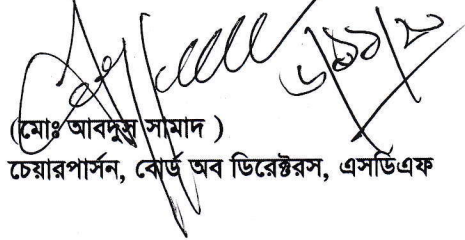 (মোঃ আবদুস সামাদ )
চেয়ারপার্সন, বোর্ড অব ডিরেক্টরস, এসডিএফ